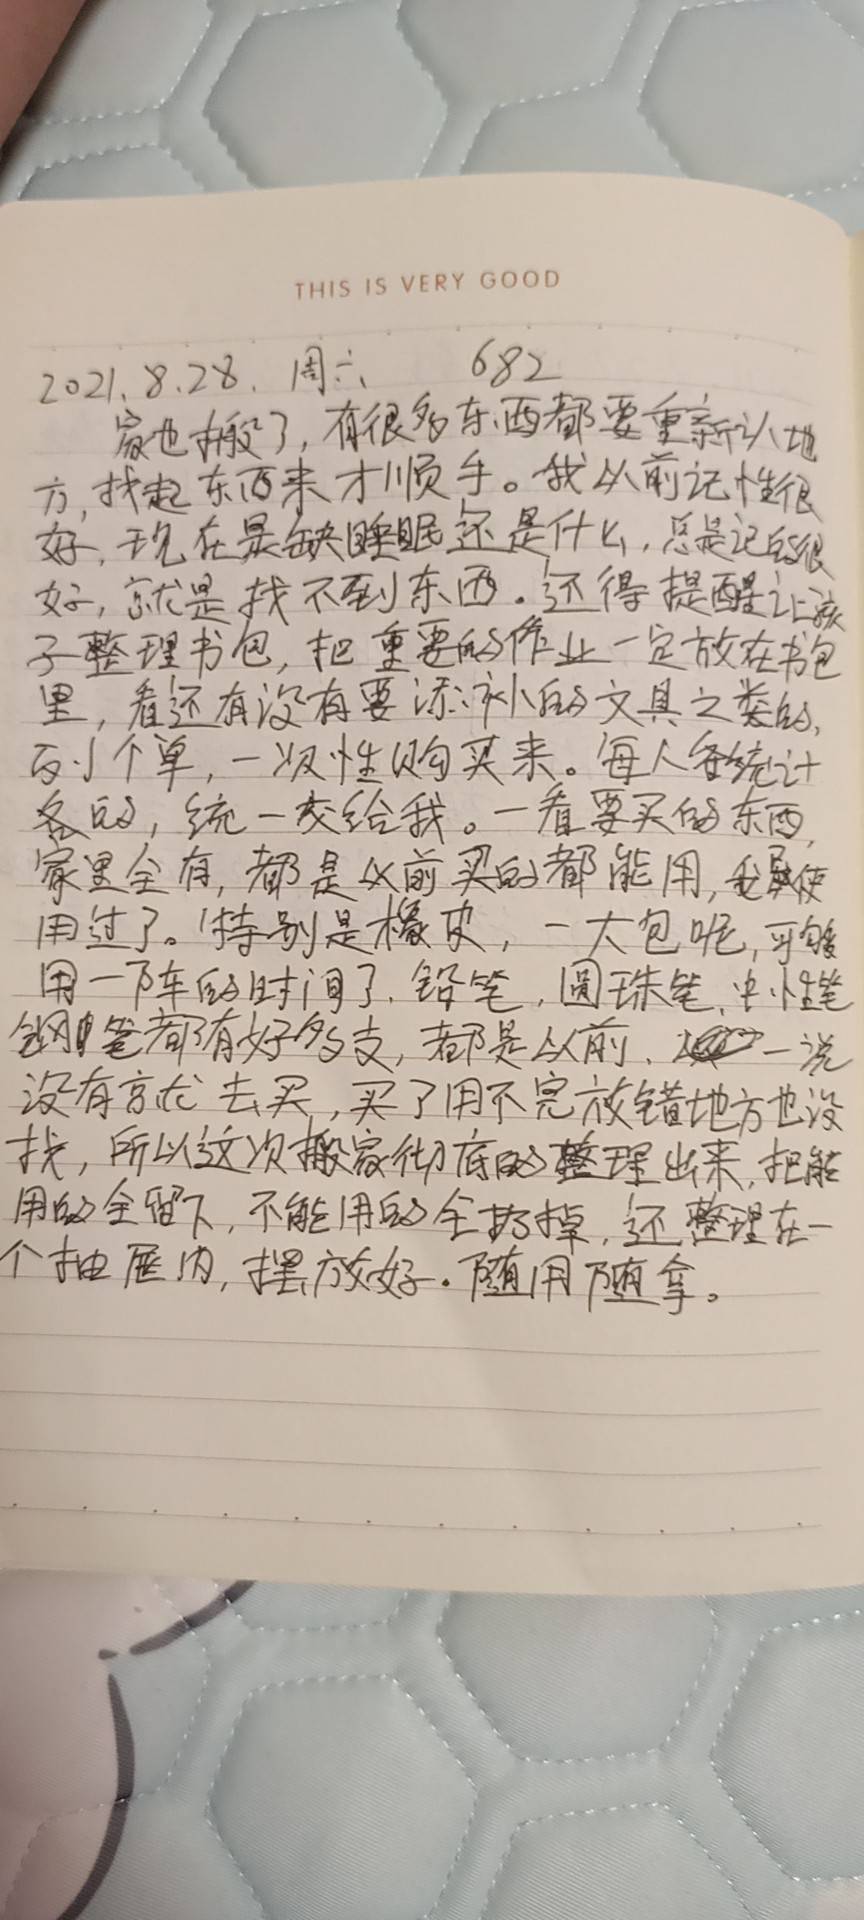 THIS IS VERY GOOD
2021.8.28. 周六 682
家也搬了,有很多东西都要重新认地
方,找起东西来才顺手。我以前记性很
好,现在是缺睡眠还是什么,总是记的很
好,就是找不到东西.还得提醒让孩
子整理书包,把重要的作业一定放在书包
里,看还有没有要添补的文具之类的,
列个单,一次性购买来。每人各统计
各的,统一交给我。一看要买的东西,
家里全有,都是以前买的都能用,使
用过了。特别是橡皮,一大包呢,可够
用一阵的时间了.铅笔,圆珠笔、中性笔
钢笔都有好多支,都是以前、一说
没有就去买,买了用不完放错地方也没
找,所以这次搬家彻底的整理出来,把能
用的全留下,不能用的全扔掉,还整理在一
个抽屉内,摆放好.随用随拿。